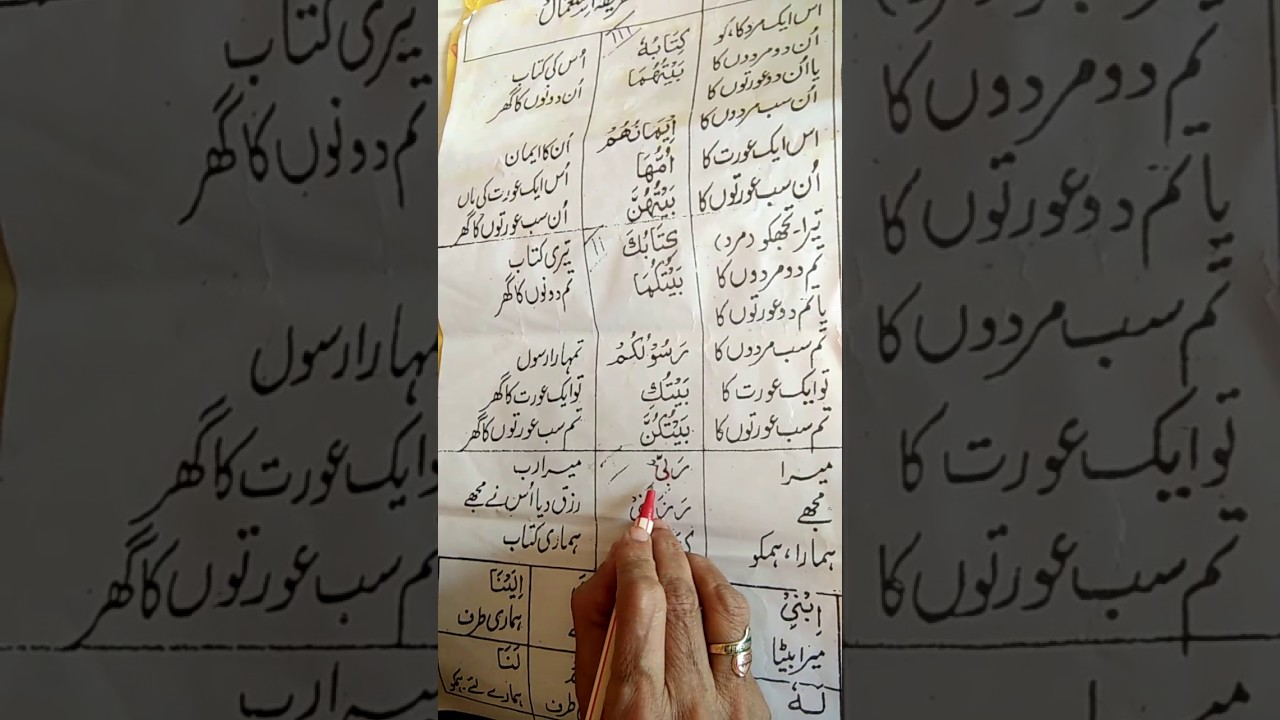 طریقہ استعمال
اس ایک مرد کا، کو كِتَابُهٗ اُس کی کتاب
اُن دو مردوں کا بَيْتُهُمَا اُن دونوں کا گھر
یا اُن دو عورتوں کا
اُن سب مردوں کا اِيْمَانُهُمْ اُن کا ایمان
اس ایک عورت کا اُمُّهَا اُس ایک عورت کی ماں
اُن سب عورتوں کا بَيْتُهُنَّ اُن سب عورتوں کا گھر
تیرا۔ تجھکو (مرد) كِتَابُكَ تیری کتاب
تم دو مردوں کا بَيْتُكُمَا تم دونوں کا گھر
یا تم دو عورتوں کا
تم سب مردوں کا رَسُوْلُكُمْ تمہارا رسول
تو ایک عورت کا بَيْتُكِ تو ایک عورت کا گھر
تم سب عورتوں کا بَيْتُكُنَّ تم سب عورتوں کا گھر
میرا رَبِّيْ میرا رب
مجھے رزق دیا اُس نے مجھے
ہمارا، ہمکو ہماری کتاب
اِبْنِيْ اِلَيْنَا
میرا بیٹا ہماری طرف
لَهٗ لَنَا
طرف ہمارے لئے۔ ہمکو